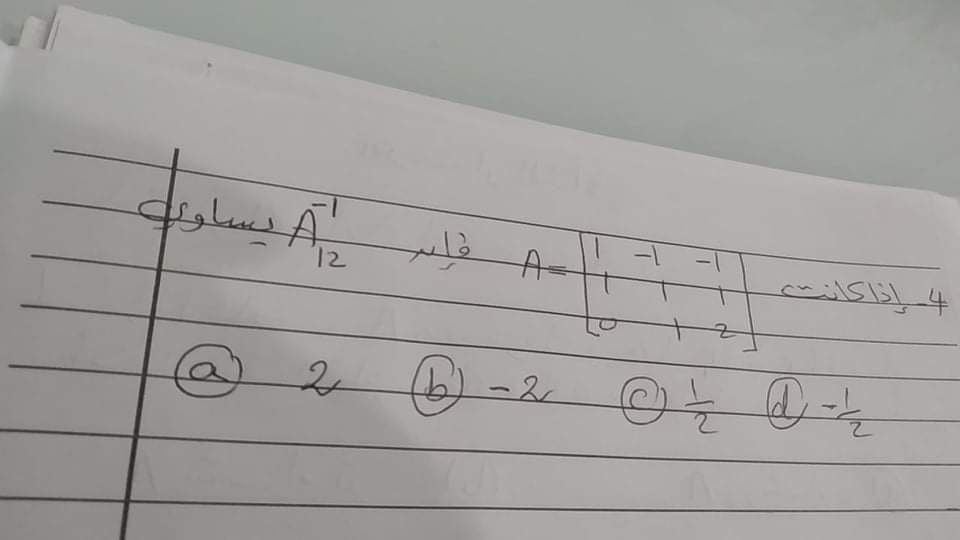 4- إذا كانت A = [1 -1 -1; 1 1 1; 0 1 2] فإن A⁻¹₁₂ يساوي
(a) 2 (b) -2 (c) 1/2 (d) -1/2